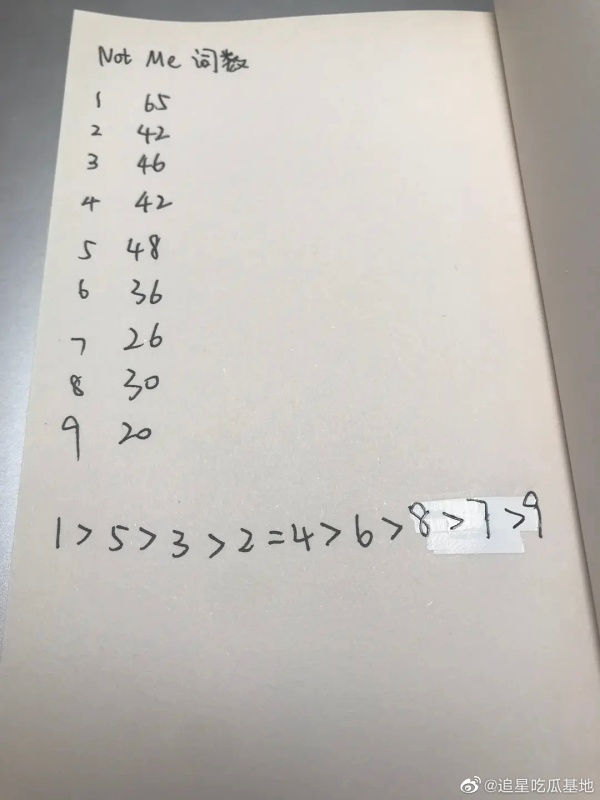 Not Me 词数
1 65
2 42
3 46
4 42
5 48
6 36
7 26
8 30
9 20
1>5>3>2=4>6>8>7>9
@追星吃瓜基地